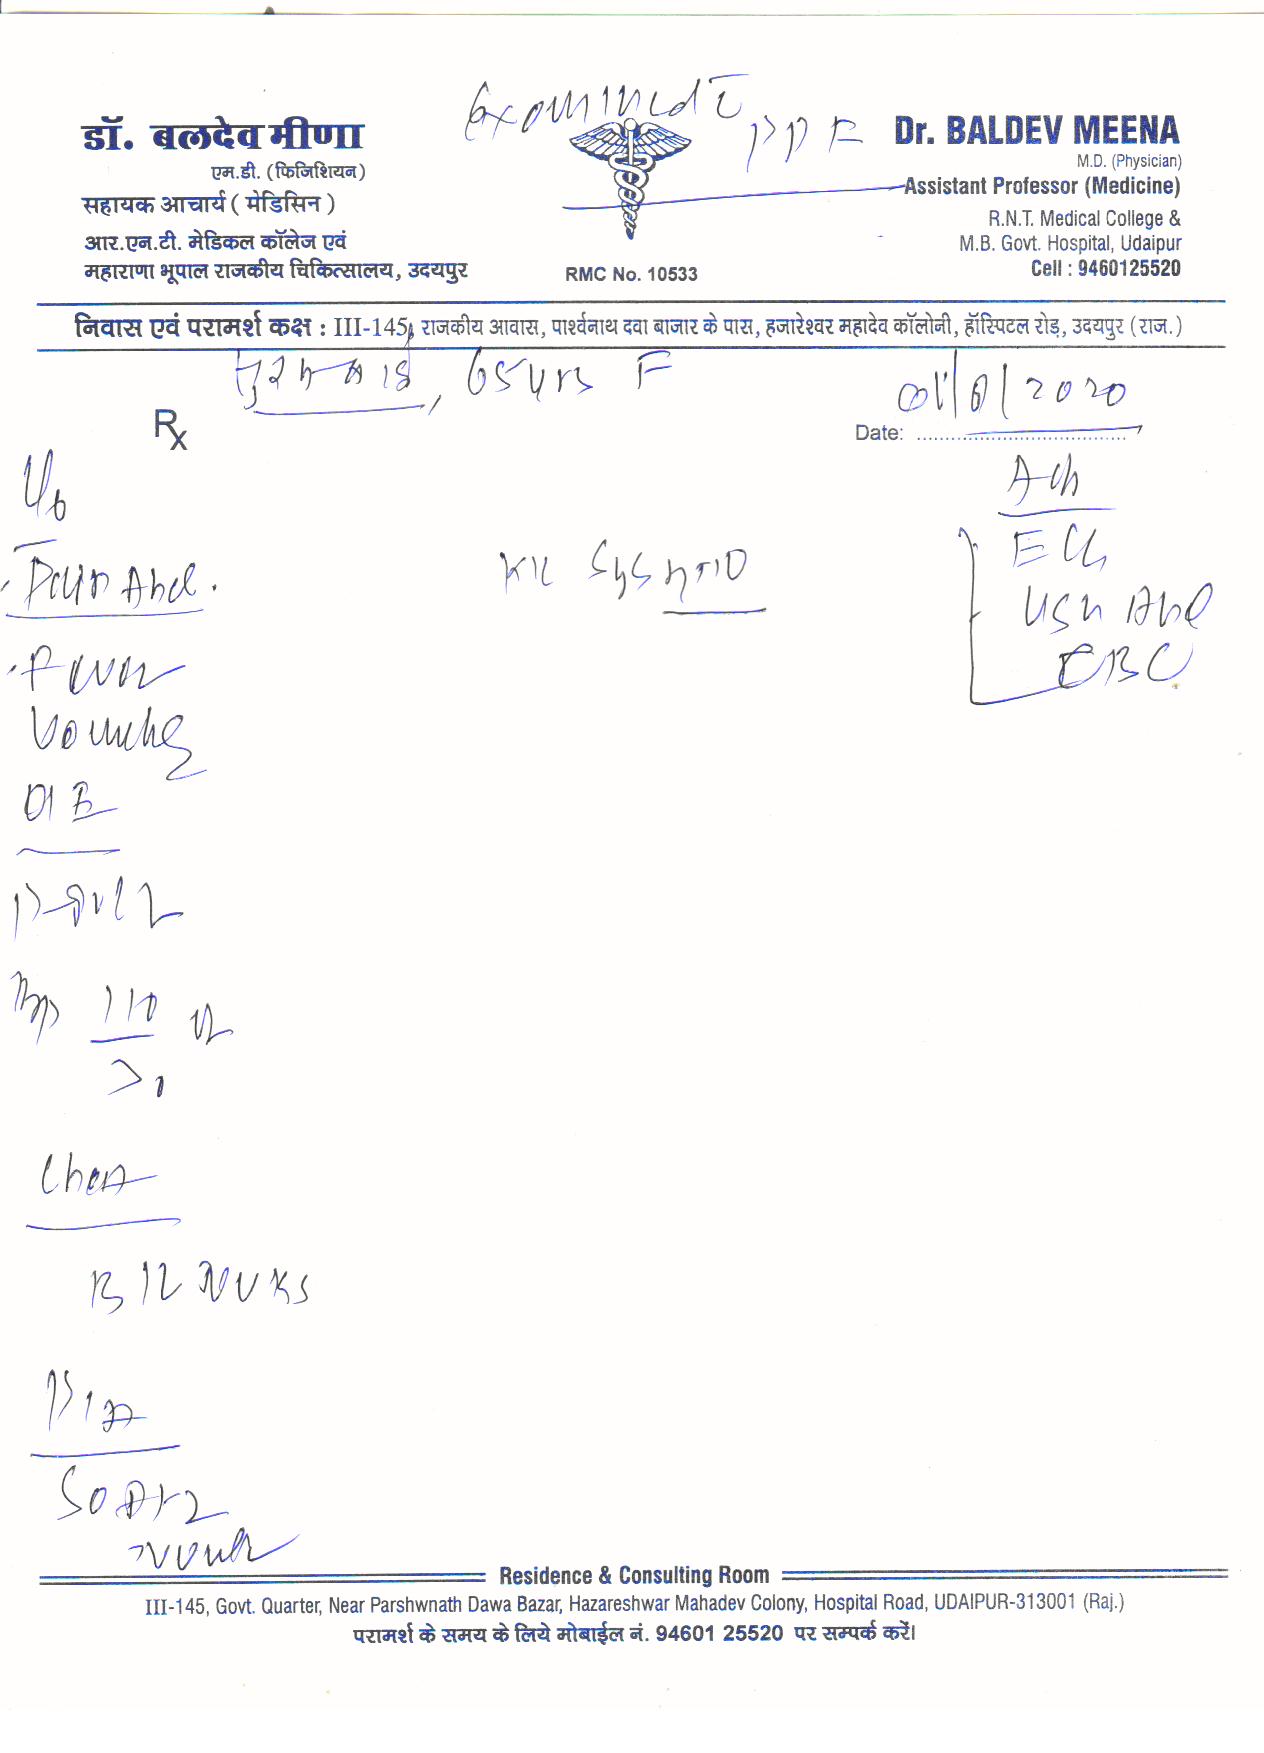 Examined c̄ PPE
डॉ. बलदेव मीणा
एम.डी. (फिजिशियन)
सहायक आचार्य ( मेडिसिन )
आर.एन.टी. मेडिकल कॉलेज एवं
महाराणा भूपाल राजकीय चिकित्सालय, उदयपुर
RMC No. 10533
Dr. BALDEV MEENA
M.D. (Physician)
Assistant Professor (Medicine)
R.N.T. Medical College &
M.B. Govt. Hospital, Udaipur
Cell : 9460125520
निवास एवं परामर्श कक्ष : III-145, राजकीय आवास, पार्श्वनाथ दवा बाजार के पास, हजारेश्वर महादेव कॉलोनी, हॉस्पिटल रोड़, उदयपुर (राज.)
65yrs F
Rx
Date: /6/2020
Pain Abd.
Fever
Vomiting
O/E
BP 110
Chest
B/L NVBS
P/A
Soft
Adv
ECG
USG Abd
CBC
Residence & Consulting Room
III-145, Govt. Quarter, Near Parshwnath Dawa Bazar, Hazareshwar Mahadev Colony, Hospital Road, UDAIPUR-313001 (Raj.)
परामर्श के समय के लिये मोबाईल नं. 94601 25520 पर सम्पर्क करें।